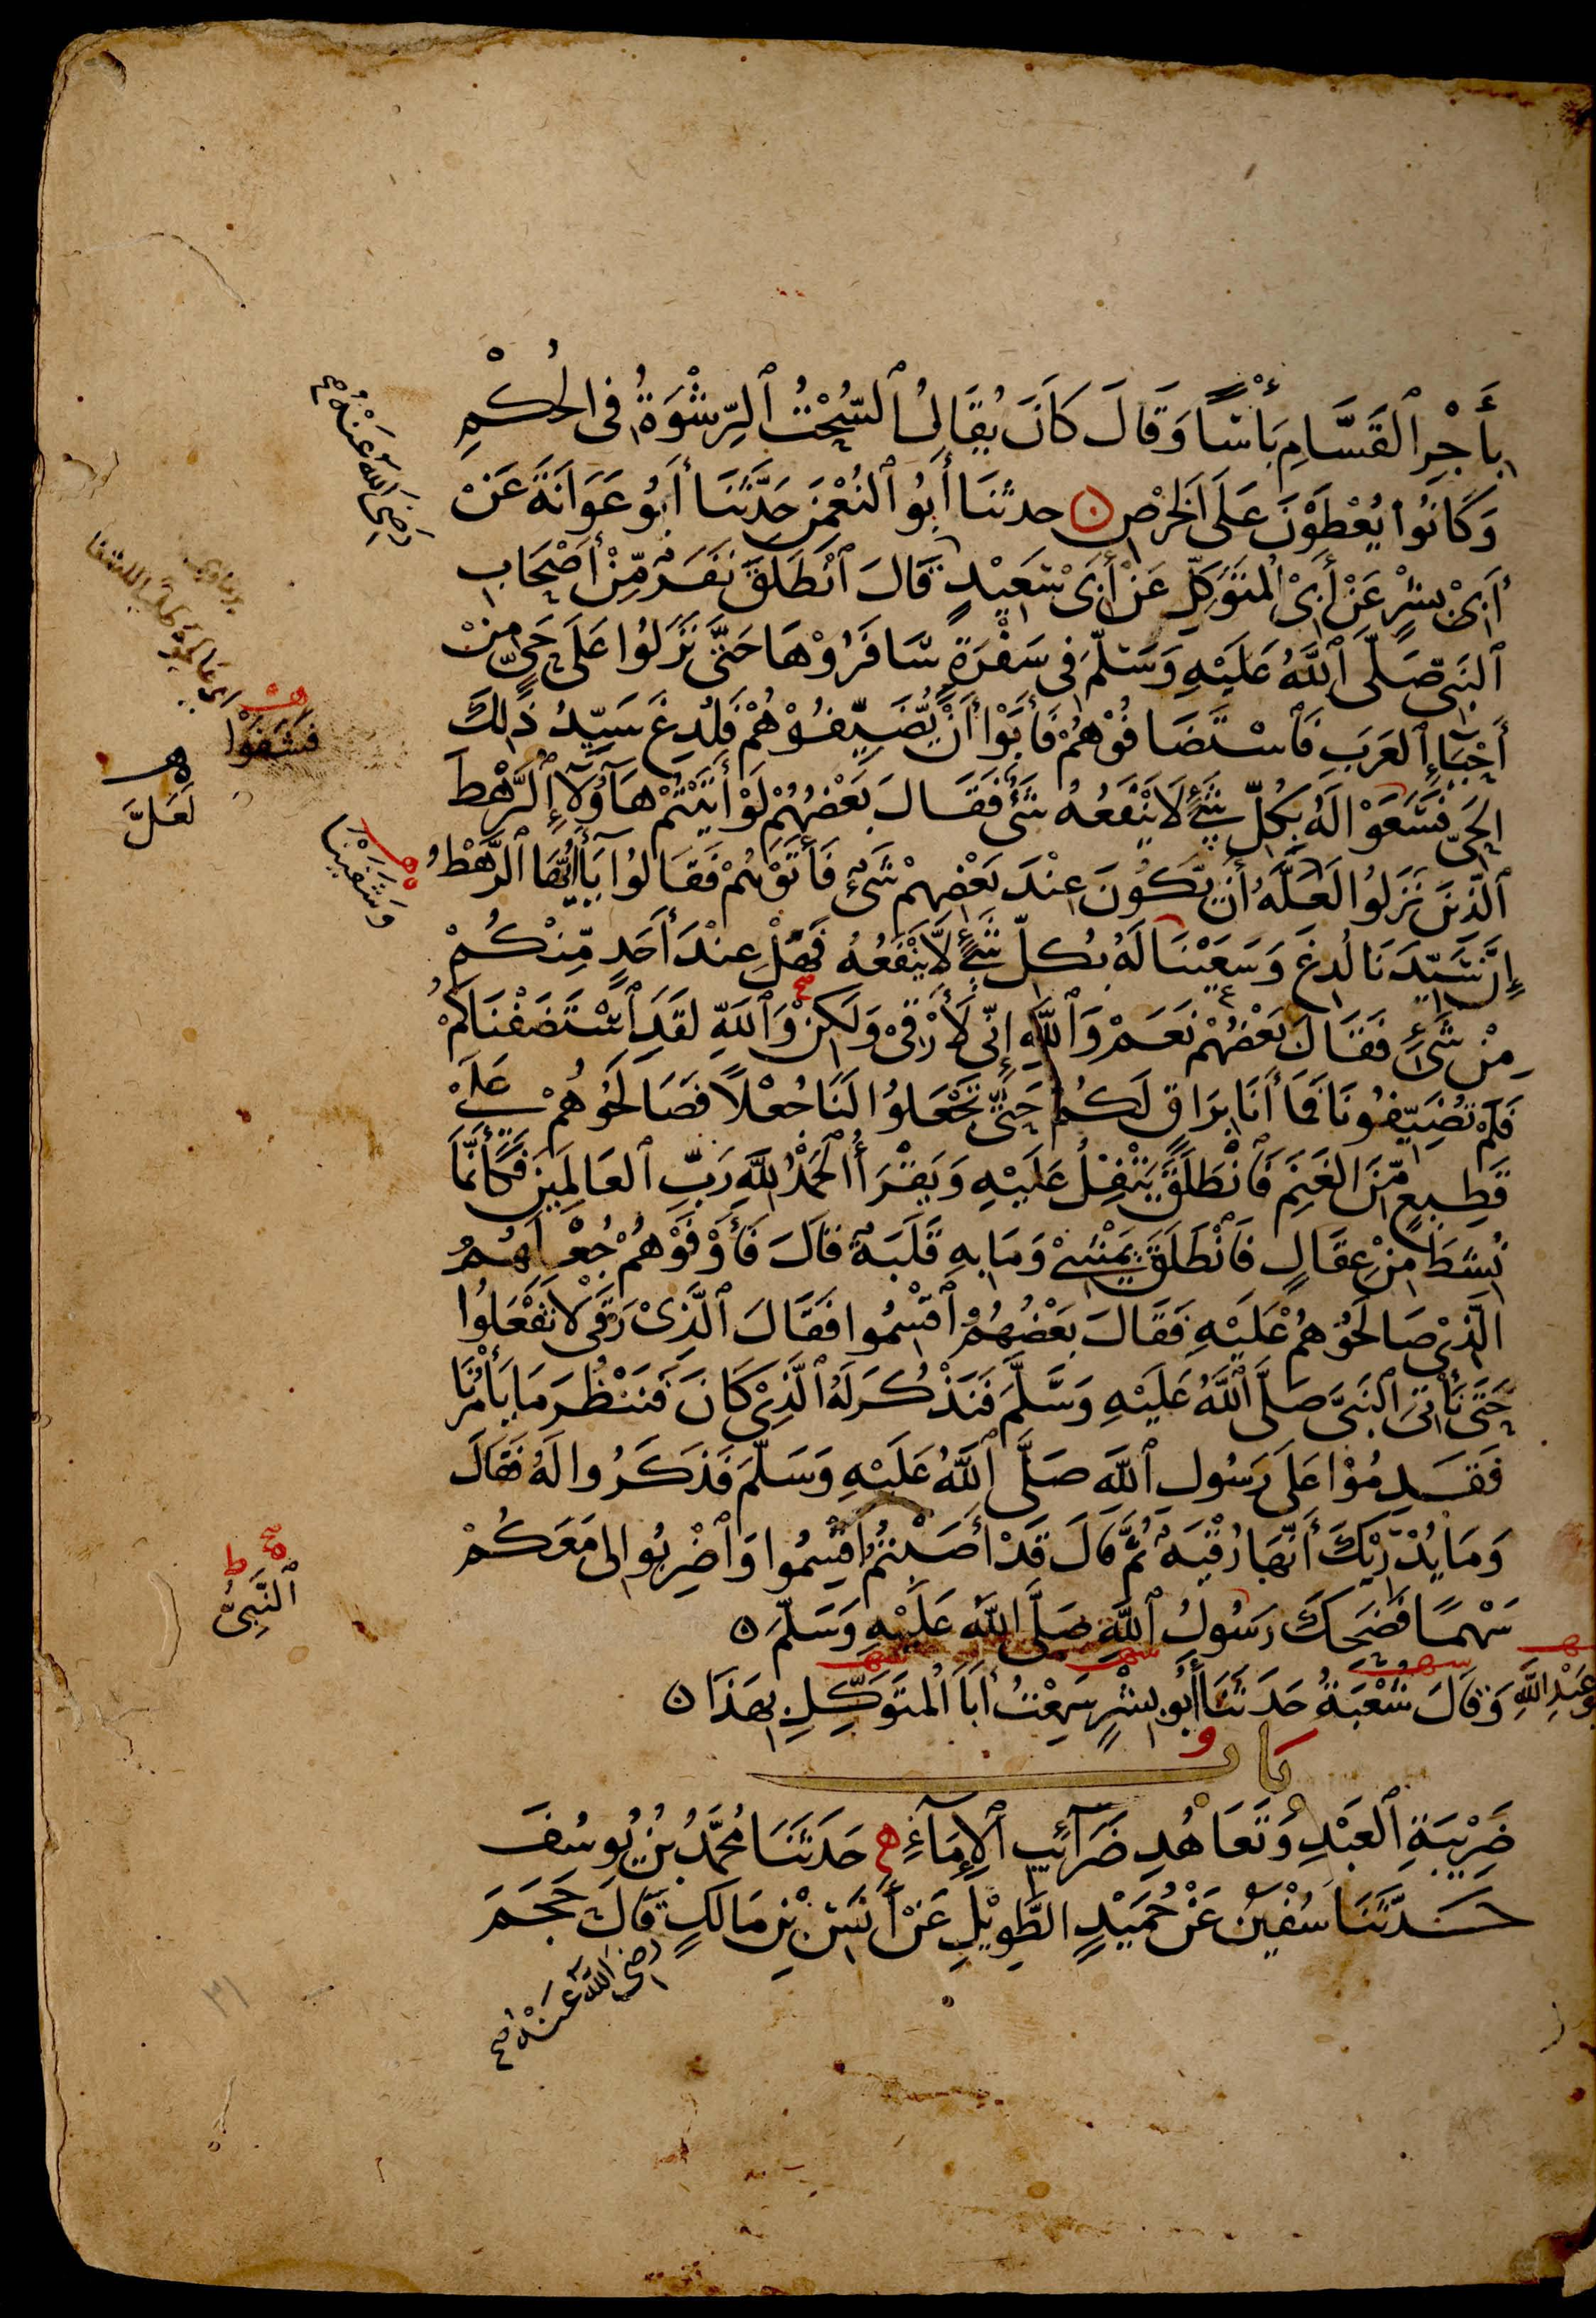 بِأَجْرِ ٱلقَسَّامِ بَأْسًا وَقَالَ كَانَ يُقَالُ ٱلسُّحْتُ ٱلرِّشْوَةُ فِى الحُكْمِ
وَكَانُوا يُعْطَوْنَ عَلَى الخَرْصِ حدثنَا أَبُو ٱلنُّعْمٰنِ حَدَّثَنَا أَبُو عَوَانَةَ عَنْ
رَضِىَ اللهُ عَنْهُ
أَبِىْ بِشْرٍ عَنْ أَبِى ٱلمُتَوَكِّلِ عَنْ أَبِىْ سَعِيْدٍ قَالَ ٱنْطَلَقَ نَفَرٌ مِّنْ أَصْحَابِ
ٱلنَّبِىِّ صَلَّى ٱللَّهُ عَلَيْهِ وَسَلَّمَ فِى سَفْرَةٍ سَافَرُوْهَا حَتَّى نَزَلُوْا عَلَى حَىٍّ مِنْ
أَحْيَاءِ ٱلعَرَبِ فَٱسْتَضَافُوْهُمْ فَأَبَوْا أَنْ يُّضَيِّفُوْهُمْ فَلُدِغَ سَيِّدُ ذٰلِكَ
فَشَفَوْا
الحَىِّ فَسَعَوْا لَهُ بِكُلِّ شَىْءٍ لَا يَنْفَعُهُ شَىْءٌ فَقَالَ بَعْضُهُمْ لَوْ أَتَيْتُمْ هَآؤُلَآءِ ٱلرَّهْطَ
ٱلَّذِيْنَ نَزَلُوا لَعَلَّهُ أَنْ يَّكُونَ عِنْدَ بَعْضِهِمْ شَىْءٌ فَأَتَوْهُمْ فَقَالُوا يَآ أَيُّهَا ٱلرَّهْطُ
لَعَلَّ
إِنَّ سَيِّدَنَا لُدِغَ وَسَعَيْنَا لَهُ بِكُلِّ شَىْءٍ لَّا يَنْفَعُهُ فَهَلْ عِنْدَ أَحَدٍ مِّنْكُمْ
وَشَفَيْنَا
مِنْ شَىْءٍ فَقَالَ بَعْضُهُمْ نَعَمْ وَٱللَّهِ إِنِّى لَأَرْقِىْ وَلَكِنْ وَٱللَّهِ لَقَدِ ٱسْتَضَفْنَاكُمْ
فَلَمْ تُضَيِّفُونَا فَمَا أَنَا بِرَاقٍ لَكُمْ حَتَّى تَجْعَلُوْا لَنَا جُعْلًا فَصَالَحُوْهُمْ عَلَىْ
قَطِيعٍ مِّنَ الغَنَمِ فَٱنْطَلَقَ يَتْفِلُ عَلَيْهِ وَيَقْرَأُ الْحَمْدُ لِلَّهِ رَبِّ ٱلعَالَمِيْنَ فَكَأَنَّمَا
نُشِطَ مِنْ عِقَالٍ فَٱنْطَلَقَ يَمْشِىْ وَمَا بِهِ قَلَبَةٌ قَالَ فَأَوْفَوْهُمْ جُعْلَهُمُ
الَّذِىْ صَالَحُوْهُمْ عَلَيْهِ فَقَالَ بَعْضُهُمُ ٱقْسِمُوا فَقَالَ ٱلَّذِىْ رَقَى لَا تَفْعَلُوا
حَتَّى نَأْتِىَ ٱلنَّبِىَّ صَلَّى ٱللَّهُ عَلَيْهِ وَسَلَّمَ فَنَذْكُرَ لَهُ ٱلَّذِىْ كَانَ فَنَنْظُرَ مَا يَأْمُرُنَا
فَقَدِمُوْا عَلَى رَسُولِ ٱللَّهِ صَلَّى ٱللَّهُ عَلَيْهِ وَسَلَّمَ فَذَكَرُوا لَهُ فَقَالَ
وَمَا يُدْرِيْكَ أَنَّهَا رُقْيَةٌ ثُمَّ قَالَ قَدْ أَصَبْتُمُ ٱقْسِمُوا وَٱضْرِبُوا لِى مَعَكُمْ
سَهْمًا فَضَحَكَ رَسُولُ ٱللَّهِ صَلَّى ٱللَّهُ عَلَيْهِ وَسَلَّمَ
ٱلنَّبِىُّ
عَبْدِ اللَّهِ وَقَالَ شُعْبَةُ حَدَثَنَا أَبُو بِشْرٍ سَمِعْتُ أَبَا ٱلْمُتَوَكِّلِ بِهَذَا
بَاب
ضَرِيْبَةِ ٱلعَبْدِ وَتَعَاهُدِ ضَرَآئِبِ ٱلإِمَآءِ حَدَثَنَا مُحَمَّدُ بْنُ يُوسُفَ
حَدَّثَنَا سُفْيٰنُ عَنْ حُمَيْدٍ الطَّوِيْلِ عَنْ أَنَسِ بْنِ مَالِكٍ قَالَ حَجَمَ
رَضِىَ اللَّهُ عَنْهُ
٣١